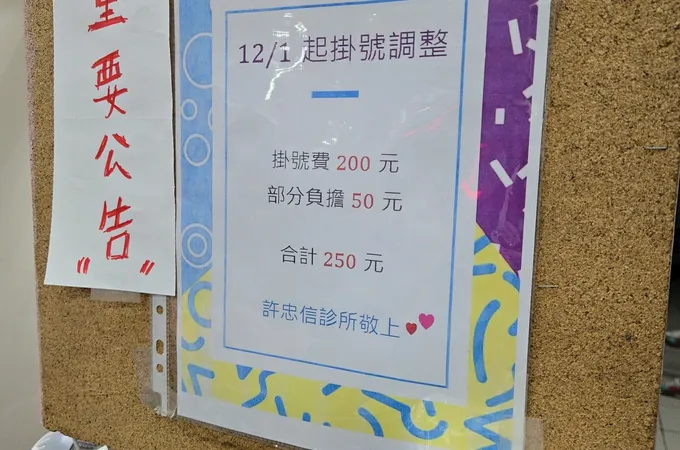 要
公
告
"        "
12/1 起掛號調整
掛號費 200 元
部分負擔 50 元
合計 250 元
許忠信診所敬上